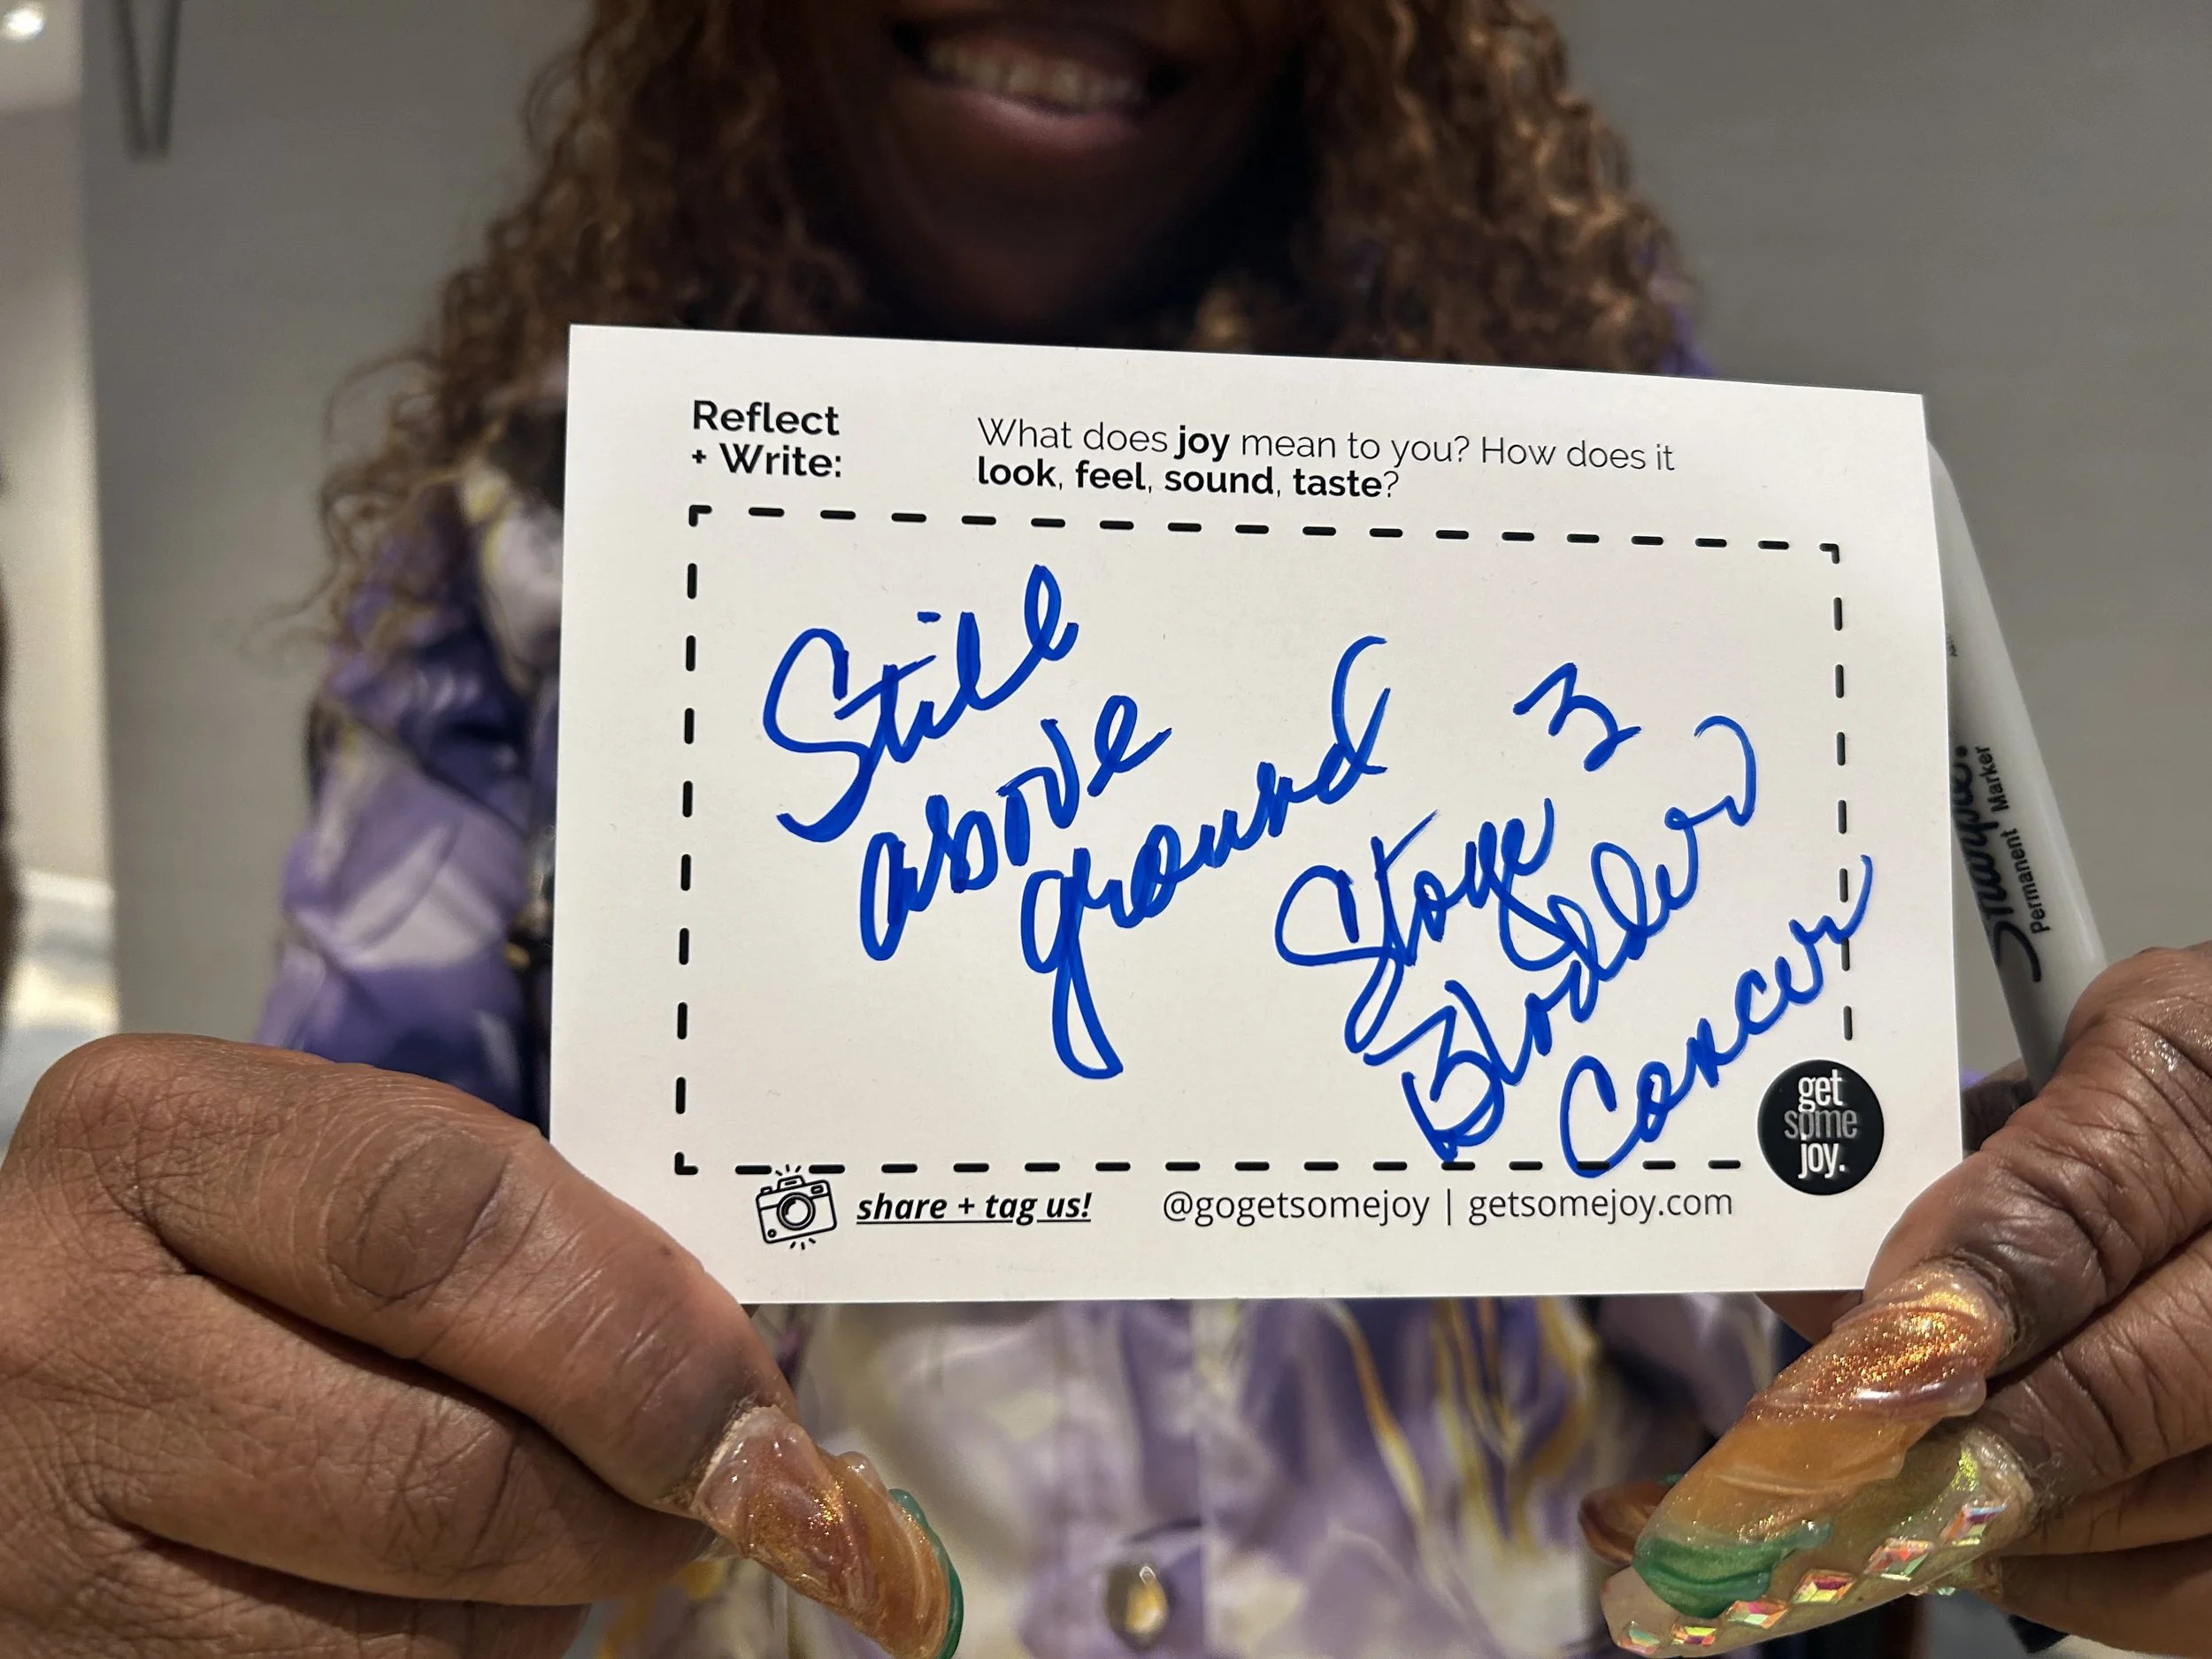 Reflect
+ Write:
What does joy mean to you? How does it
look, feel, sound, taste?
Still
above
ground
Stage 3
Bladder
Cancer
get
some
joy.
share + tag us!
@gogetsomejoy | getsomejoy.com
Sharpie.
Permanent Marker